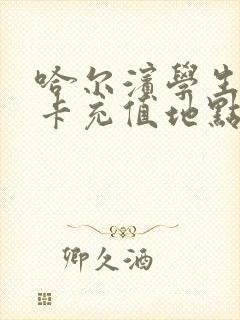 哈尔濱學生
卡充值地點
卿久酒